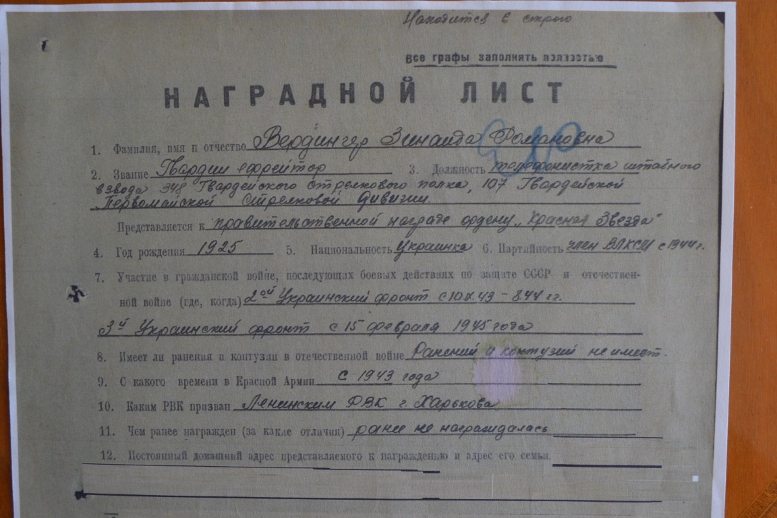 Находится в строю
Все графы заполнять полностью
НАГРАДНОЙ ЛИСТ
1. Фамилия, имя и отчество Вердингер Зинаида Романовна
2. Звание Гвардии ефрейтор 3. Должность телефонистка штабного
взвода 348 Гвардейского стрелкового полка, 107 Гвардейской
Первомайской Стрелковой дивизии.
Представляется к правительственной награде ордену „Красная Звезда"
4. Год рождения 1925 5. Национальность Украинка 6. Партийность член ВЛКСМ с 1944 г.
7. Участие в гражданской войне, последующих боевых действиях по защите СССР и отечествен-
ной войне (где, когда) 2ой Украинский фронт
3й Украинский фронт с 15 февраля 1945 года
8. Имеет ли ранения и контузии в отечественной войне Ранений и контузий не имеет.
9. С какого времени в Красной Армии с 1943 года
10. Каким РВК призван Ленинским РВК г. Харькова
11. Чем ранее награжден (за какие отличия) ранее не награждалась
12. Постоянный домашний адрес представляемого к награждению и адрес его семьи